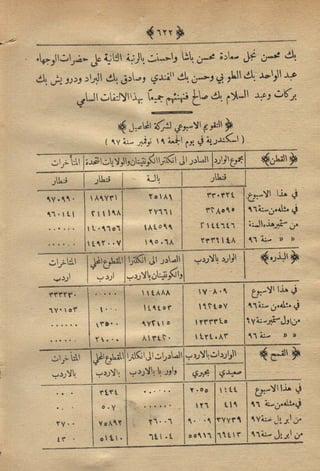 ﴿ ٦٢٢ ﴾
بك محسن نجل سعادة محسن باشا واحسنت بالرتبة الثانية على حضرات الوجهاء
عبد الواحد بك الطوبي وحسن بك الفندي وصادق بك البراد ودرويش بك
بركات وعبد السلام بك صالح فنهنئهم جميعاً بهذا الالتفات السامي
﴿ التقويم الاسبوعي لشركة المحاصيل ﴾
( اسكندرية في يوم الجمعة ١٩ نوفمبر سنة ٩٧ )
﴿ القطن ﴾ مجموع الوارد الصادر الى انكلترا الكونتيننان والولايات المتحدة المتأخرات
قنطار بالـة قنطار قنطار
في هذا الاسبوع ٣٣٠٣٢٤ ٢٥١٨٩ ١٨٩٧٣١ ٩٧٠٩٩٠
في مثله من سنة ٩٦ ٣٢٨٥٩٥ ٢٧٦٦١ ٢١٤١٩٨ ٩٦٠١٤١
من سبتمبر هذه السنة ٢١٤٤٦٤٦ ١٨٤٥٩٩ ١٤٠٩٦٥٦ ٠٠٠٠٠٠
» » سنة ٩٦ ٢٣٣٦١٤٨ ١٩٥٠٦٨ ١٤٩٢٠٠٧ ٠٠٠٠٠٠
﴿ البذره ﴾ الوارد بالاردب الصادر الى انكلترا والكونتيننان بالاردب المقطوع المحلي اردب المتاخرات اردب
في هذا الاسبوع ١٧٠٨٠٩ ١١٤٨٨٨ ٠٠٠٠٠ ٣٣٣٢٣٠
في مثله من سنة ٩٦ ١٩٢٤٥٧ ١٤٩٤٥٣ ٤٠٠٠ ٦٧٠١٥٣
من اول سبتمبر سنة ٩٧ ١٢٣٣٣٤٥ ٩٧٢٤١٥ ١٣٥٠٠ ٠٠٠٠٠٠
» » سنة ٩٦ ١٤٢٤٠٨٣ ٨١٣٤٢٠ ٢٤٠٠٠ ٠٠٠٠٠٠
﴿ القمح ﴾ الواردات بالاردب الصادرات الى انكلترا واوربا بالاردب المقطوع المحلي بالاردب المتاخرات بالاردب
صعيدي بحيري
في هذا الاسبوع ١٤٤٤ ٢٠٥٥ ٠٠٠٠٠ ٣٤٢٤ ٠٠٠٠
في مثله من سنة ٩٦ ٤١٩ ١٢٦ ٠٠٠٠٠ ٥٠٧ ٠٠٠٠
من ابريل سنة ٩٧ ٣٧٧٣٩ ٩٠٠٠٩ ٢٢٦٠٨ ٧٥٨٩٢ ٢٧٠٠
من ابريل سنة ٩٦ ٦٩٤١٣ ٥٥٩١٦ ٦٤١٠٤ ٥١٤١٠ ٤٣٠٠